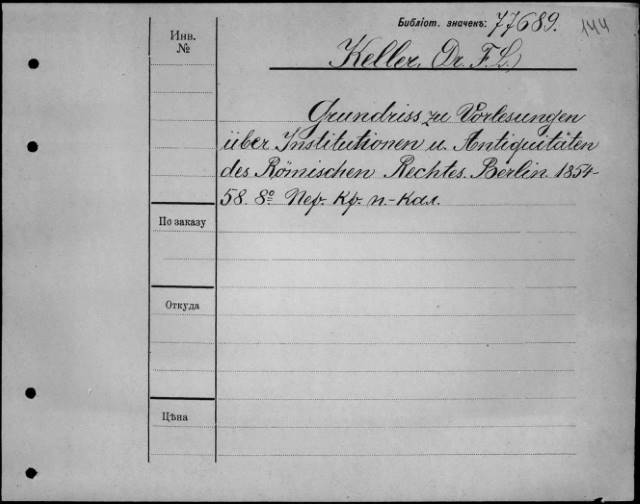 Библіот. значекъ: 77689. 144
Инв. №
Keller, Dr. F. L.
Grundriss zu Vorlesungen
über Institutionen u. Antiquitäten
des Römischen Rechtes. Berlin. 1854-
58. 8º Пер. Кр. п.-кал.
По заказу
Откуда
Цѣна